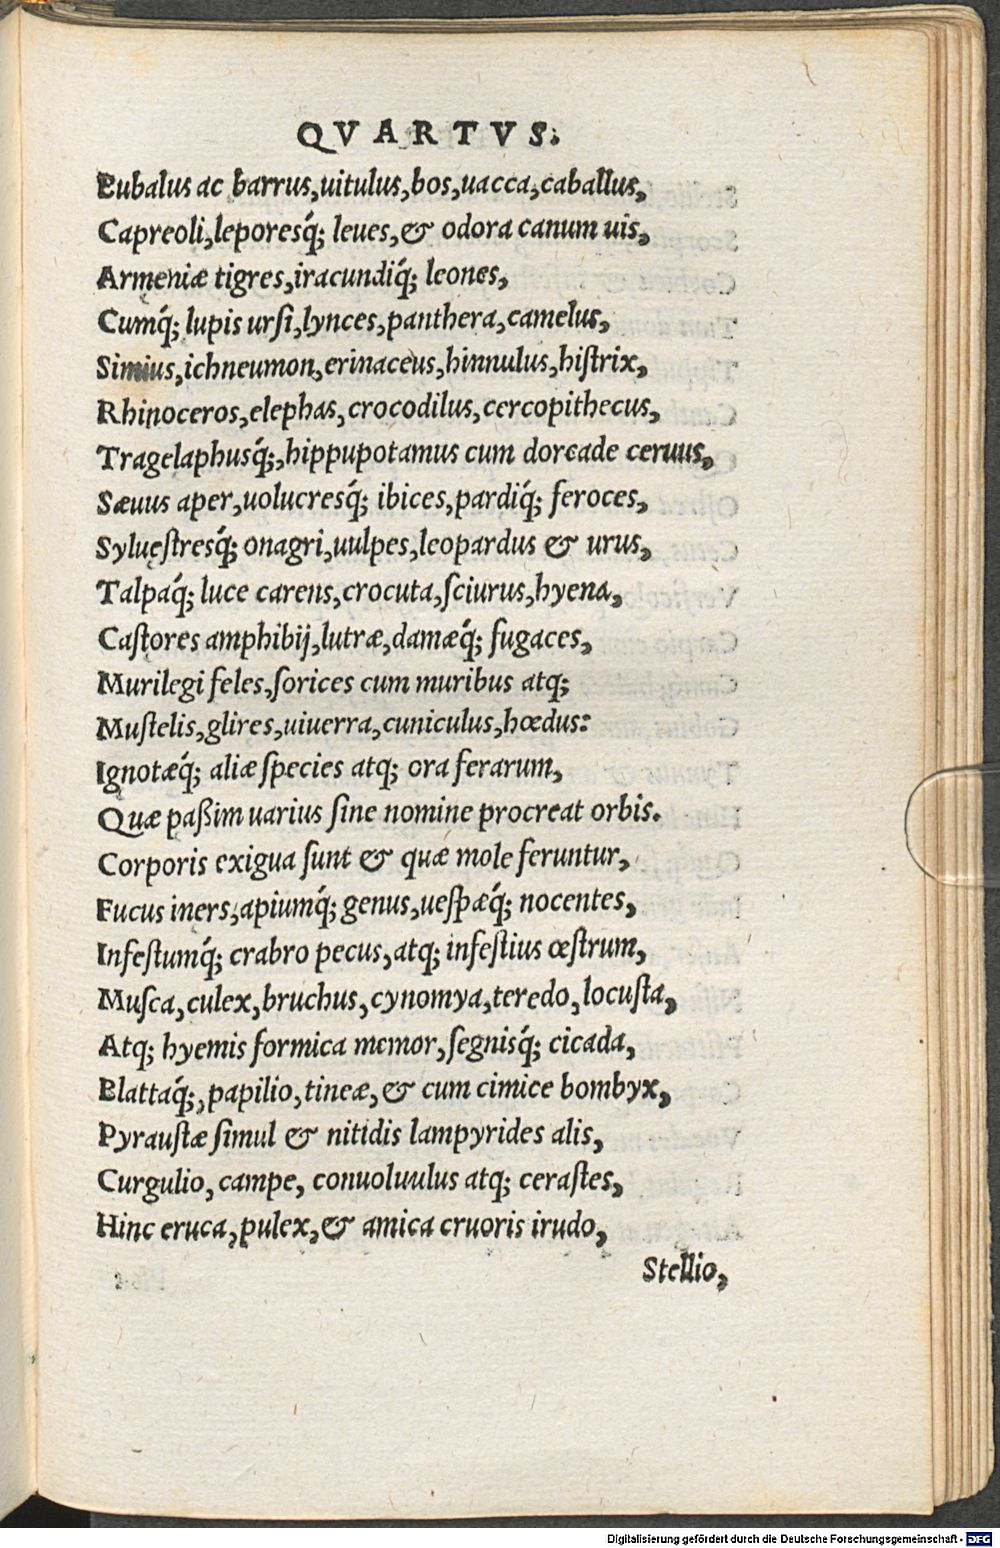 QVARTVS.
Bubalus ac barrus,uitulus,bos,uacca,caballus,
Capreoli,leporesq́; leues,& odora canum uis,
Armeniæ tigres,iracundiq́; leones,
Cumq́; lupis ursi,lynces,panthera,camelus,
Simius,ichneumon,erinaceus,hinnulus,histrix,
Rhinoceros,elephas,crocodilus,cercopithecus,
Tragelaphusq́;,hippupotamus cum doreade ceruus,
Sæuus aper,uolucresq́; ibices,pardiq́; feroces,
Syluestresq́; onagri,uulpes,leopardus & urus,
Talpaq́; luce carens,crocuta,sciurus,hyena,
Castores amphibij,lutræ,damæq́; fugaces,
Murilegi feles,sorices cum muribus atq;
Mustelis,glires,uiuerra,cuniculus,hœdus:
Ignotæq́; aliæ species atq; ora ferarum,
Quæ paßim uarius sine nomine procreat orbis.
Corporis exigua sunt & quæ mole feruntur,
Fucus iners,apiumq́; genus,uespæq́; nocentes,
Infestumq́; crabro pecus,atq; infestius œstrum,
Musca,culex,bruchus,cynomya,teredo,locusta,
Atq; hyemis formica memor,segnisq́; cicada,
Blattaq́;,papilio,tineæ,& cum cimice bombyx,
Pyraustæ simul & nitidis lampyrides alis,
Curgulio, campe, conuoluulus atq; cerastes,
Hinc eruca,pulex,& amica cruoris irudo,
Stellio,
Digitalisierung gefördert durch die Deutsche Forschungsgemeinschaft - DFG